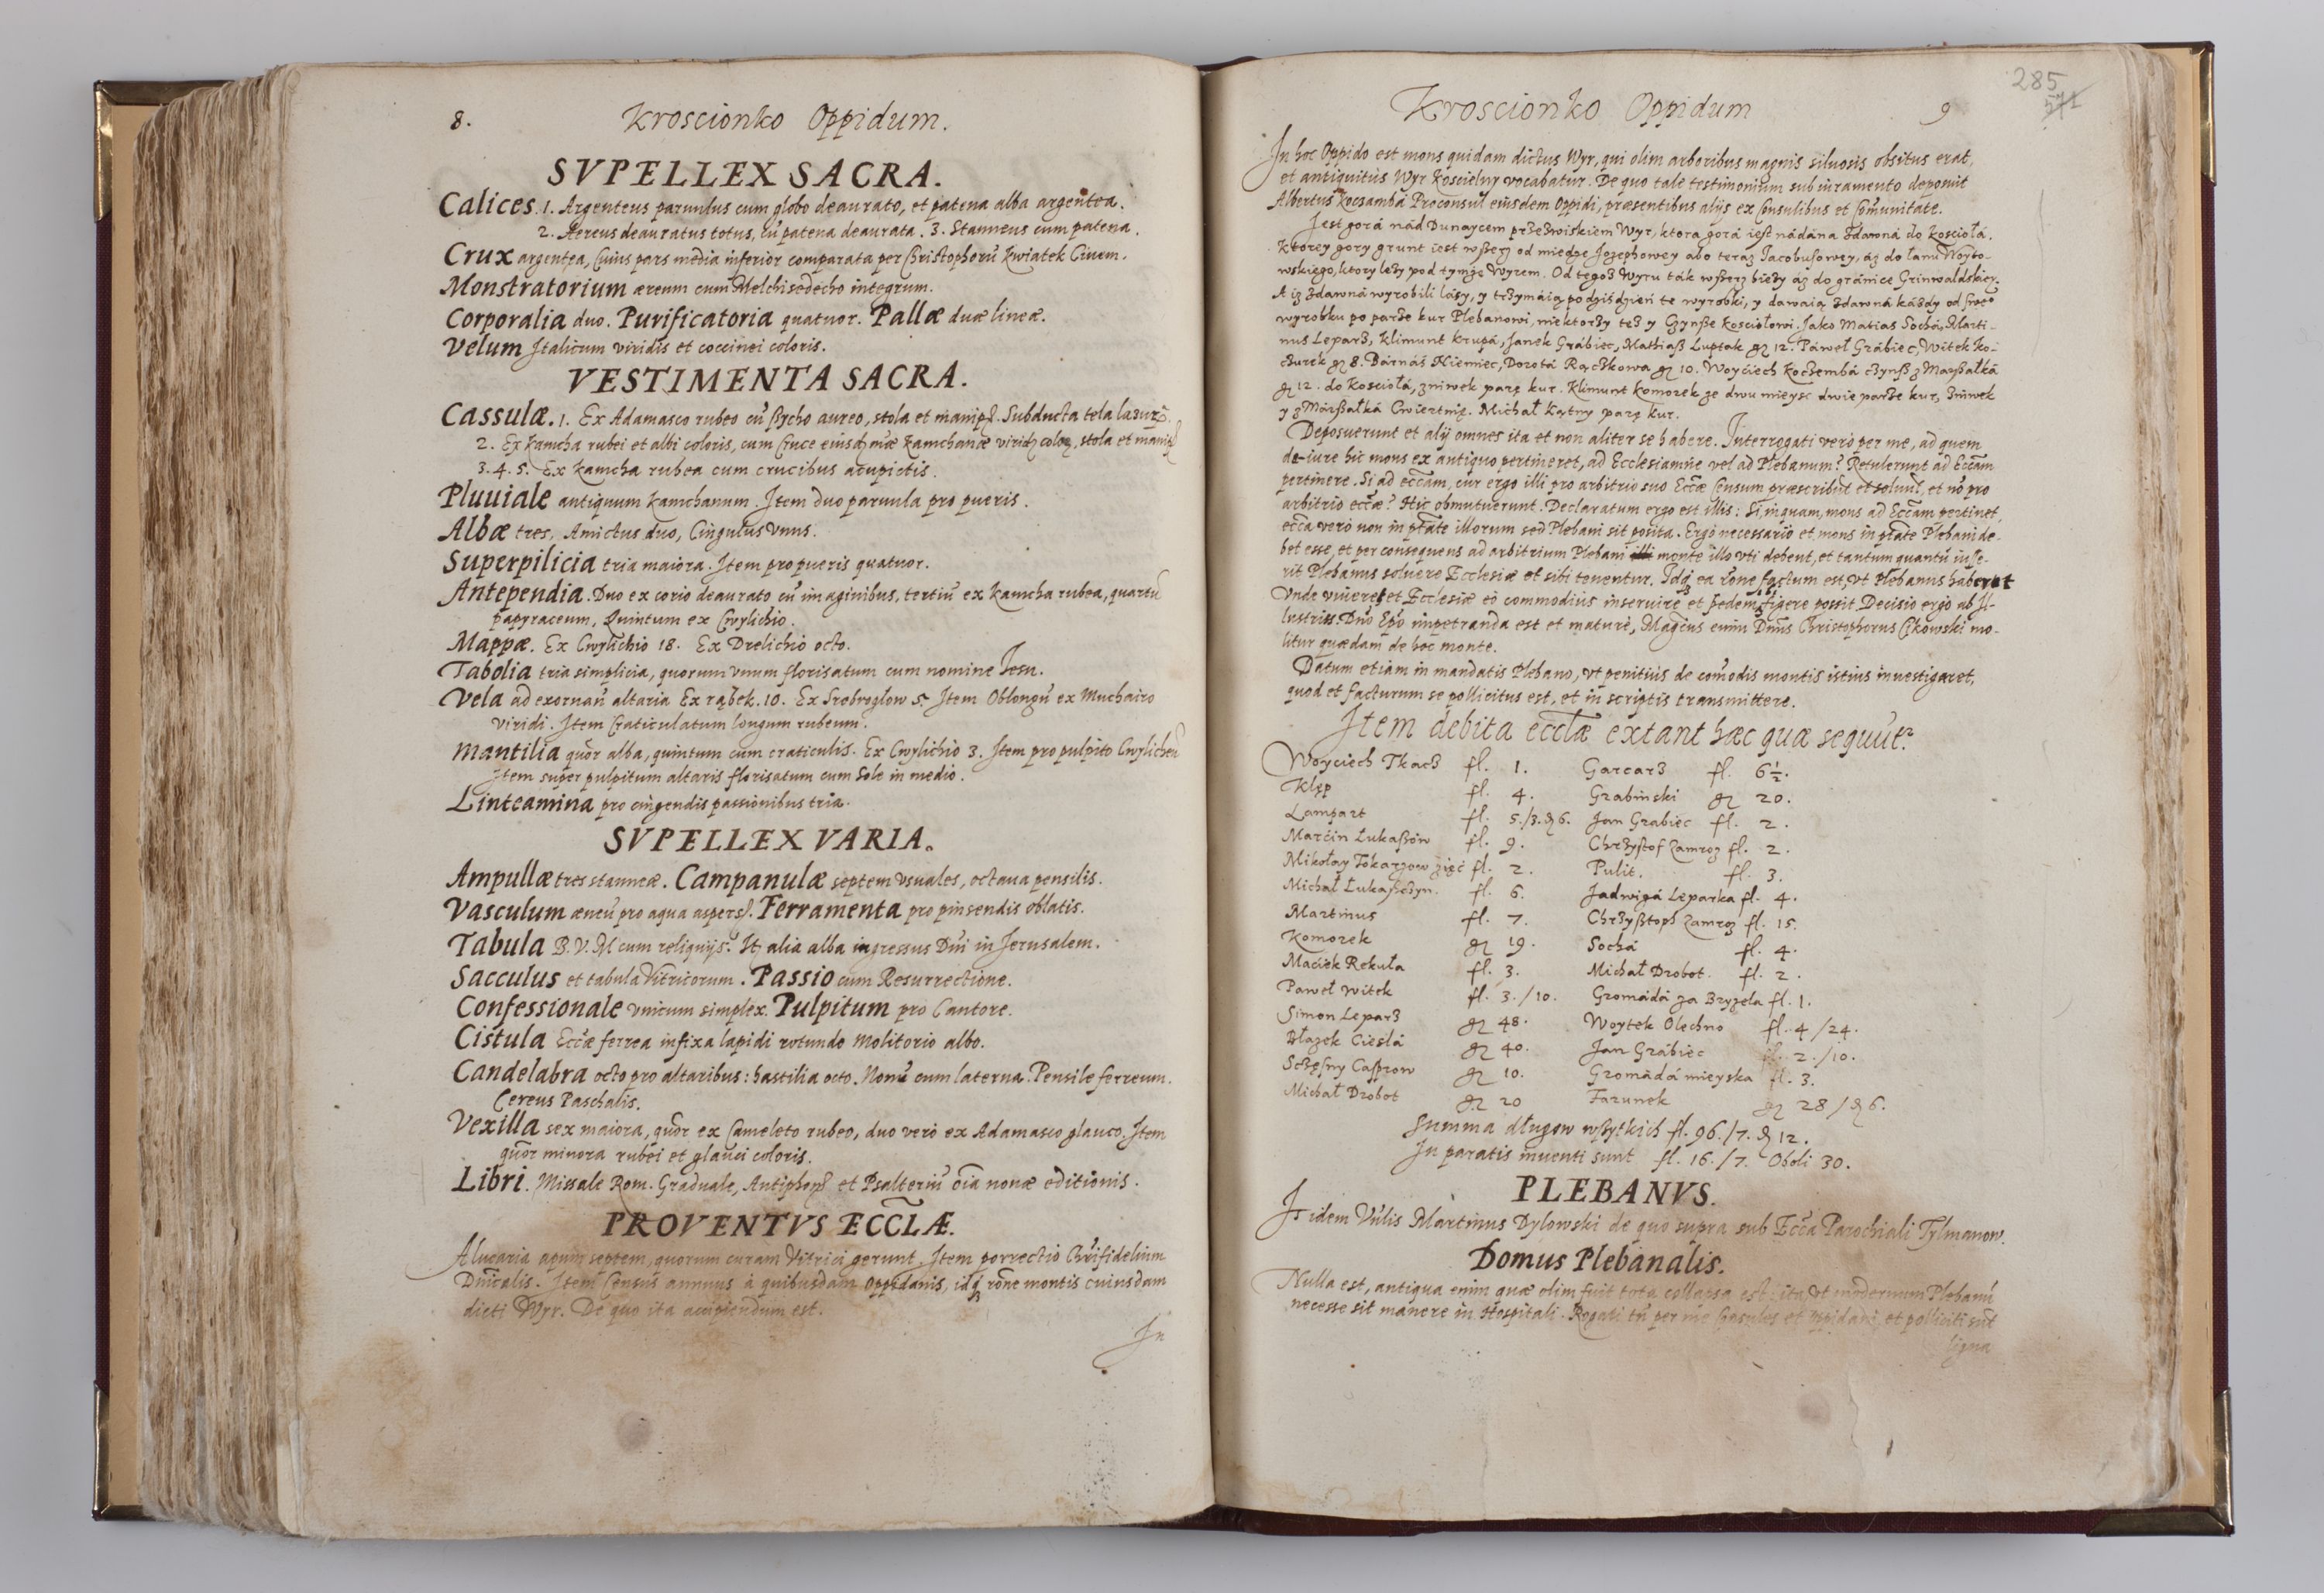 8. Kroscionko Oppidum.
SVPELLEX SACRA.
Calices. 1. Argenteus paruulus cum globo deaurato, et patena alba argentea.
2. Aereus deauratus totus, cū patena deaurata. 3. Stanneus cum patena.
Crux argentea, Cuius pars media inferior comparata per Christophorū Kwiatek Ciuem.
Monstratorium æreum cum Melchisedecho integrum.
Corporalia duo. Purificatoria quatuor. Pallæ duæ lineæ.
Velum Italicum viridis et coccinei coloris.
VESTIMENTA SACRA.
Cassulæ. 1. Ex Adamasco rubeo cū ßycho aureo, stola et manip. Subducta tela lasur.
2. Ex Kamcha rubei et albi coloris, cum Cruce kamchanæ stola et manip
3. 4. 5. Ex kamcha rubea cum crucibus acupictis.
Pluuiale antiquum kamchanum. Item duo paruula pro pueris.
Albæ tres, Amictus duo, Cingulus vnus.
Superpilicia tria maiora. Item pro pueris quatuor.
Antependia. Duo ex corio deaurato cū imaginibus, tertiū ex kamcha rubea, quartū
papyraceum, Quintum ex Cwylichio.
Mappæ. Ex Cwylichio 18. Ex Drelichio octo.
Tabolia tria simplicia, quorum vnum florisatum cum nomine Iesu.
Vela ad exornan̄ altaria Ex rąbek. 10. Ex Srebrogłow 5. Item Oblongū ex Muchairo
viridi. Item Craticulatum longum rubeum.
Mantilia quor alba, quintum cum craticulis. Ex Cwylichio 3. Item pro pulpito Cwylicheū
Item super pulpitum altaris florisatum cum Sole in medio.
Linteamina pro cingendis passionibus tria.
SVPELLEX VARIA.
Ampullæ tres stanneæ. Campanulæ septem vsuales, octaua pensilis.
Vasculum æneū pro aqua aspers. Ferramenta pro pinsendis oblatis.
Tabula B.V.M cum reliquijs. It alia alba ingressus Dn̄i in Jerusalem.
Sacculus et tabula Vitricorum. Passio cum Resurrectione.
Confessionale vnicum simplex. Pulpitum pro Cantore.
Cistula Eccæ ferrea infixa lapidi rotundo molitorio albo.
Candelabra octo pro altaribus: hastilia octo. Nonū cum laterna. Pensile ferreum.
Cereus Paschalis.
Vexilla sex maiora, quōr ex Cameleto rubeo, duo verò ex Adamasco glauco. Item
quōr minora rubei et glauci coloris.
Libri. Missale Rom. Graduale, Antiphon et Psalteriū oīa nouæ editionis.
PROVENTVS ECCLÆ.
Aluearia apum septem, quorum curam Vitrici gerunt. Item porrectio Chrīfidelium
Dnicalis. Item Census annuus à quibusdam oppidanis, idq rōne montis cuiusdam
dicti Wyr. De quo ita accipiendum est.
In
Kroscionko Oppidum 9
285
In hoc Oppido est mons quidam dictus Wyr, qui olim arboribus magnis siluosis obsitus erat,
et antiquitùs Wyr koscielny vocabatur. De quo tale testimonium sub iuramento deposuit
Albertus Kocsamba Proconsul eiusdem Oppidi, præsentibus alijs ex Consulibus et Com̄unitate.
Jest gorá nád Dunaycem Wyr, ktora gorá iest nádána zdawná do kosciołá.
Ktorey gory grunt iest wßerz od miedze Jozephowey abo teraz Jacobusowey, áż do łanu Woyto-
wskiego, ktory leży pod tymże Wyrem. Od tegoż Wyru ták wßerz bieży áż do gránice Grinwaldskiey.
A iż zdawná wyrobili lásy, y trzymáią po dziśdzień te wyrobki, y dawáią zdawná káżdy od swe°
wyrobku po parze kur Plebanowi, niektorzy też y Czynße kosciołowi. Jako Matias Sochá, Marti-
nus Leparz, Klimunt krupá, Janek Grábiec, Mathiaß Luptak gr 12. Páweł Grábiec, Witek Ko-
czurek gr 8. Bárnáś Niemiec, Dorotá Rączkowa gr 10. Woyciech Kochembá czynß z Marßałká
gr 12. do Kosciołá, żniwek parę kur. Klimunt Komorek ze dwu mieysc dwie parze kur, żniwek
y z Márßałká Cwiertnię. Michał Kątny parę kur.
Deposuerunt et alij omnes ita et non aliter se habere. Interrogati verò per me, ad quem
de iure hic mons ex antiquo pertineret, ad Ecclesiamne vel ad Plebanum? Retulerunt ad Eccam
pertinere. Si ad eccam, cur ergo illi pro arbitrio suo Eccæ Censum præscribūt et soluūt, et nō pro
arbitrio eccæ? Hic obmutuerunt. Declaratum ergo est illis: Si, inquam, mons ad Eccam pertinet,
ecca verò non in ptāte illorum sed Plebani sit posita. Ergo necessariò et mons in ptāte Plebani de-
bet esse, et per consequens ad arbitrium Plebani monte illo vti debent, et tantum quantū iusse-
rit Plebanus soluere Ecclesiæ et sibi tenentur. Idq ea rōne factum est, vt Plebanus haberet
vnde viueret et Ecclesiæ eò commodiùs inseruire et pedem figere possit. Decisio ergò ab Il-
lustriss. Dnō Epō impetranda est et maturè, Magcus enim Dnus Christophorus Cikowski mo-
litur quædam de hoc monte.
Datum etiam in mandatis Plebano, vt penitiùs de com̄odis montis istius inuestigaret,
quod et facturum se pollicitus est, et in scriptis transmittere.
Item debita ecclæ extant hæc quæ sequūtr
Woyciech Tkacz fl. 1. Garcarz fl. 6½.
Klęp fl. 4. Grabinski gr 20.
Lampart fl. 5./3. 6. Jan Grabiec fl. 2.
Marćin Łukaßow fl. 9. Chrzystof Zamroz fl. 2.
Mikołay Tokarzow zięć fl. 2. Pulit. fl. 3.
Michał Łukaßczyn. fl. 6. Jadwigá Leparka fl. 4.
Martinus fl. 7. Chrzyßtoph Zamroz fl. 15.
Komorek gr 19. Sochá fl. 4.
Maciek Rekuła fl. 3. Michał Drobot. fl. 2.
Paweł Witek fl. 3./10. Gromádá za Bryzela fl. 1.
Simon Leparz gr 48. Woytek Olechno fl. 4/24.
Błazek Cieślá gr 40. Jan Grábiec fl. 2./10.
Sczęsny Casprow gr 10. Gromádá mieyska fl. 3.
Michał Drobot gr 20 Farunek gr 28/ 6.
Summa długow wßytkich fl. 96./7. 12.
In paratis inuenti sunt fl. 16./7. Oboli 30.
PLEBANVS.
Is idem Vnlis Martinus Dylowski de quo supra sub Ecca Parochiali Tylmanow.
Domus Plebanalis.
Nulla est, antiqua enim quæ olim fuit tota collapsa est: ita vt modernum Plebanū
necesse sit manere in Hospitali. Rogati tn̄ per me Consules et oppidani, et polliciti sūt
ligna